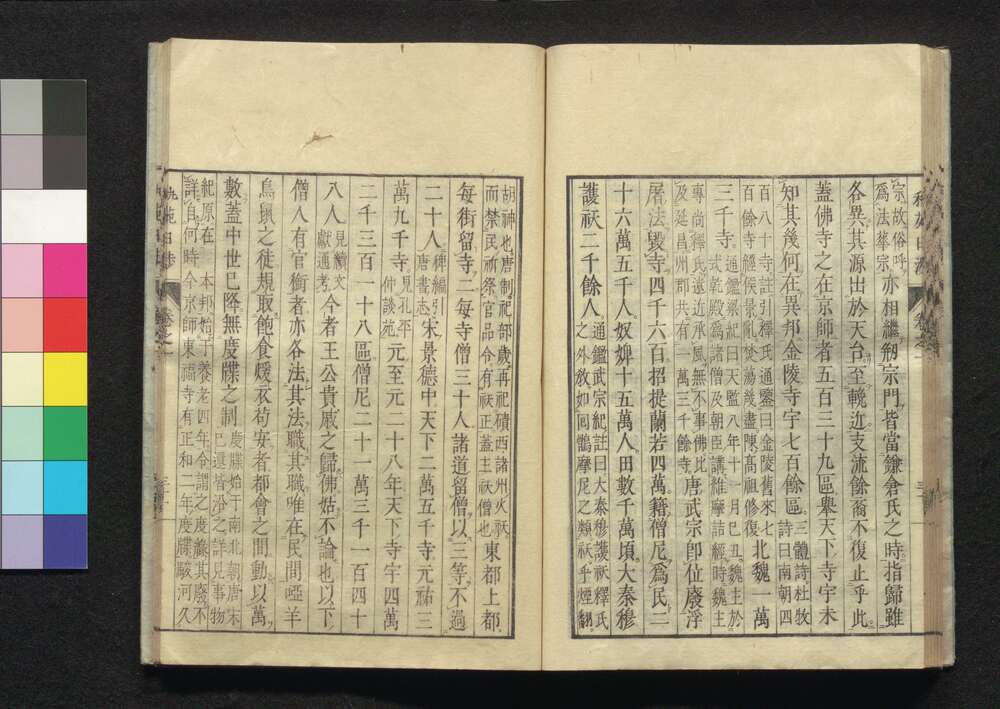 宗故俗呼
爲法華宗亦相繼剏宗門皆當鎌倉氏之時指歸雖
各異其源出於天台至輓近支流餘裔不復止乎此
蓋佛寺之在京師者五百三十九區擧天下寺宇未
知其幾何在異邦金陵寺宇七百餘區三體詩杜牧
詩曰南朝四
百八十寺註引釋氏通鑒曰金陵舊來七
百餘寺經侯景亂焚蕩幾盡陳高祖修復北魏一萬
三千寺通鑑梁紀曰天監八年十一月己丑魏主於
式乾殿爲諸僧及朝臣講維摩詰經時魏主
專尚釋氏遠近承風無不事佛比
及延昌州郡共有一萬三千餘寺唐武宗卽位廢浮
屠法毀寺四千六百招提蘭若四萬籍僧尼爲民二
十六萬五千人奴婢十五萬人田數千萬頃大秦穆
護祆二千餘人通鑑武宗紀註曰大秦穆護祆釋氏
之外敎如回鶻摩尼之類祆乎煙翻
胡神也唐制祀部歲再祀磧西諸州火祆
而禁民祈祭官品令有祆正蓋主祆僧也東都上都
每街留寺二每寺僧三十人諸道留僧以三等不過
二十人稗編引
唐書志宋景德中天下二萬五千寺元祐三
萬九千寺見孔平
仲談苑元至元二十八年天下寺宇四萬
二千三百一十八區僧尼二十一萬三千一百四十
八人見續文
獻通考今者王公貴戚之歸佛姑不論也以下
僧人有官銜者亦各法其法職其職唯在民間啞羊
鳥鼠之徒規取飽食煖衣苟安者都會之間動以萬
數蓋中世已降無度牒之制度牒始于南北朝唐宋
已還皆沿之詳見事物
紀原在 本邦始于養老四年令謂之度緣其廢不
詳自何時今京師東福寺有正和二年度牒駿河久